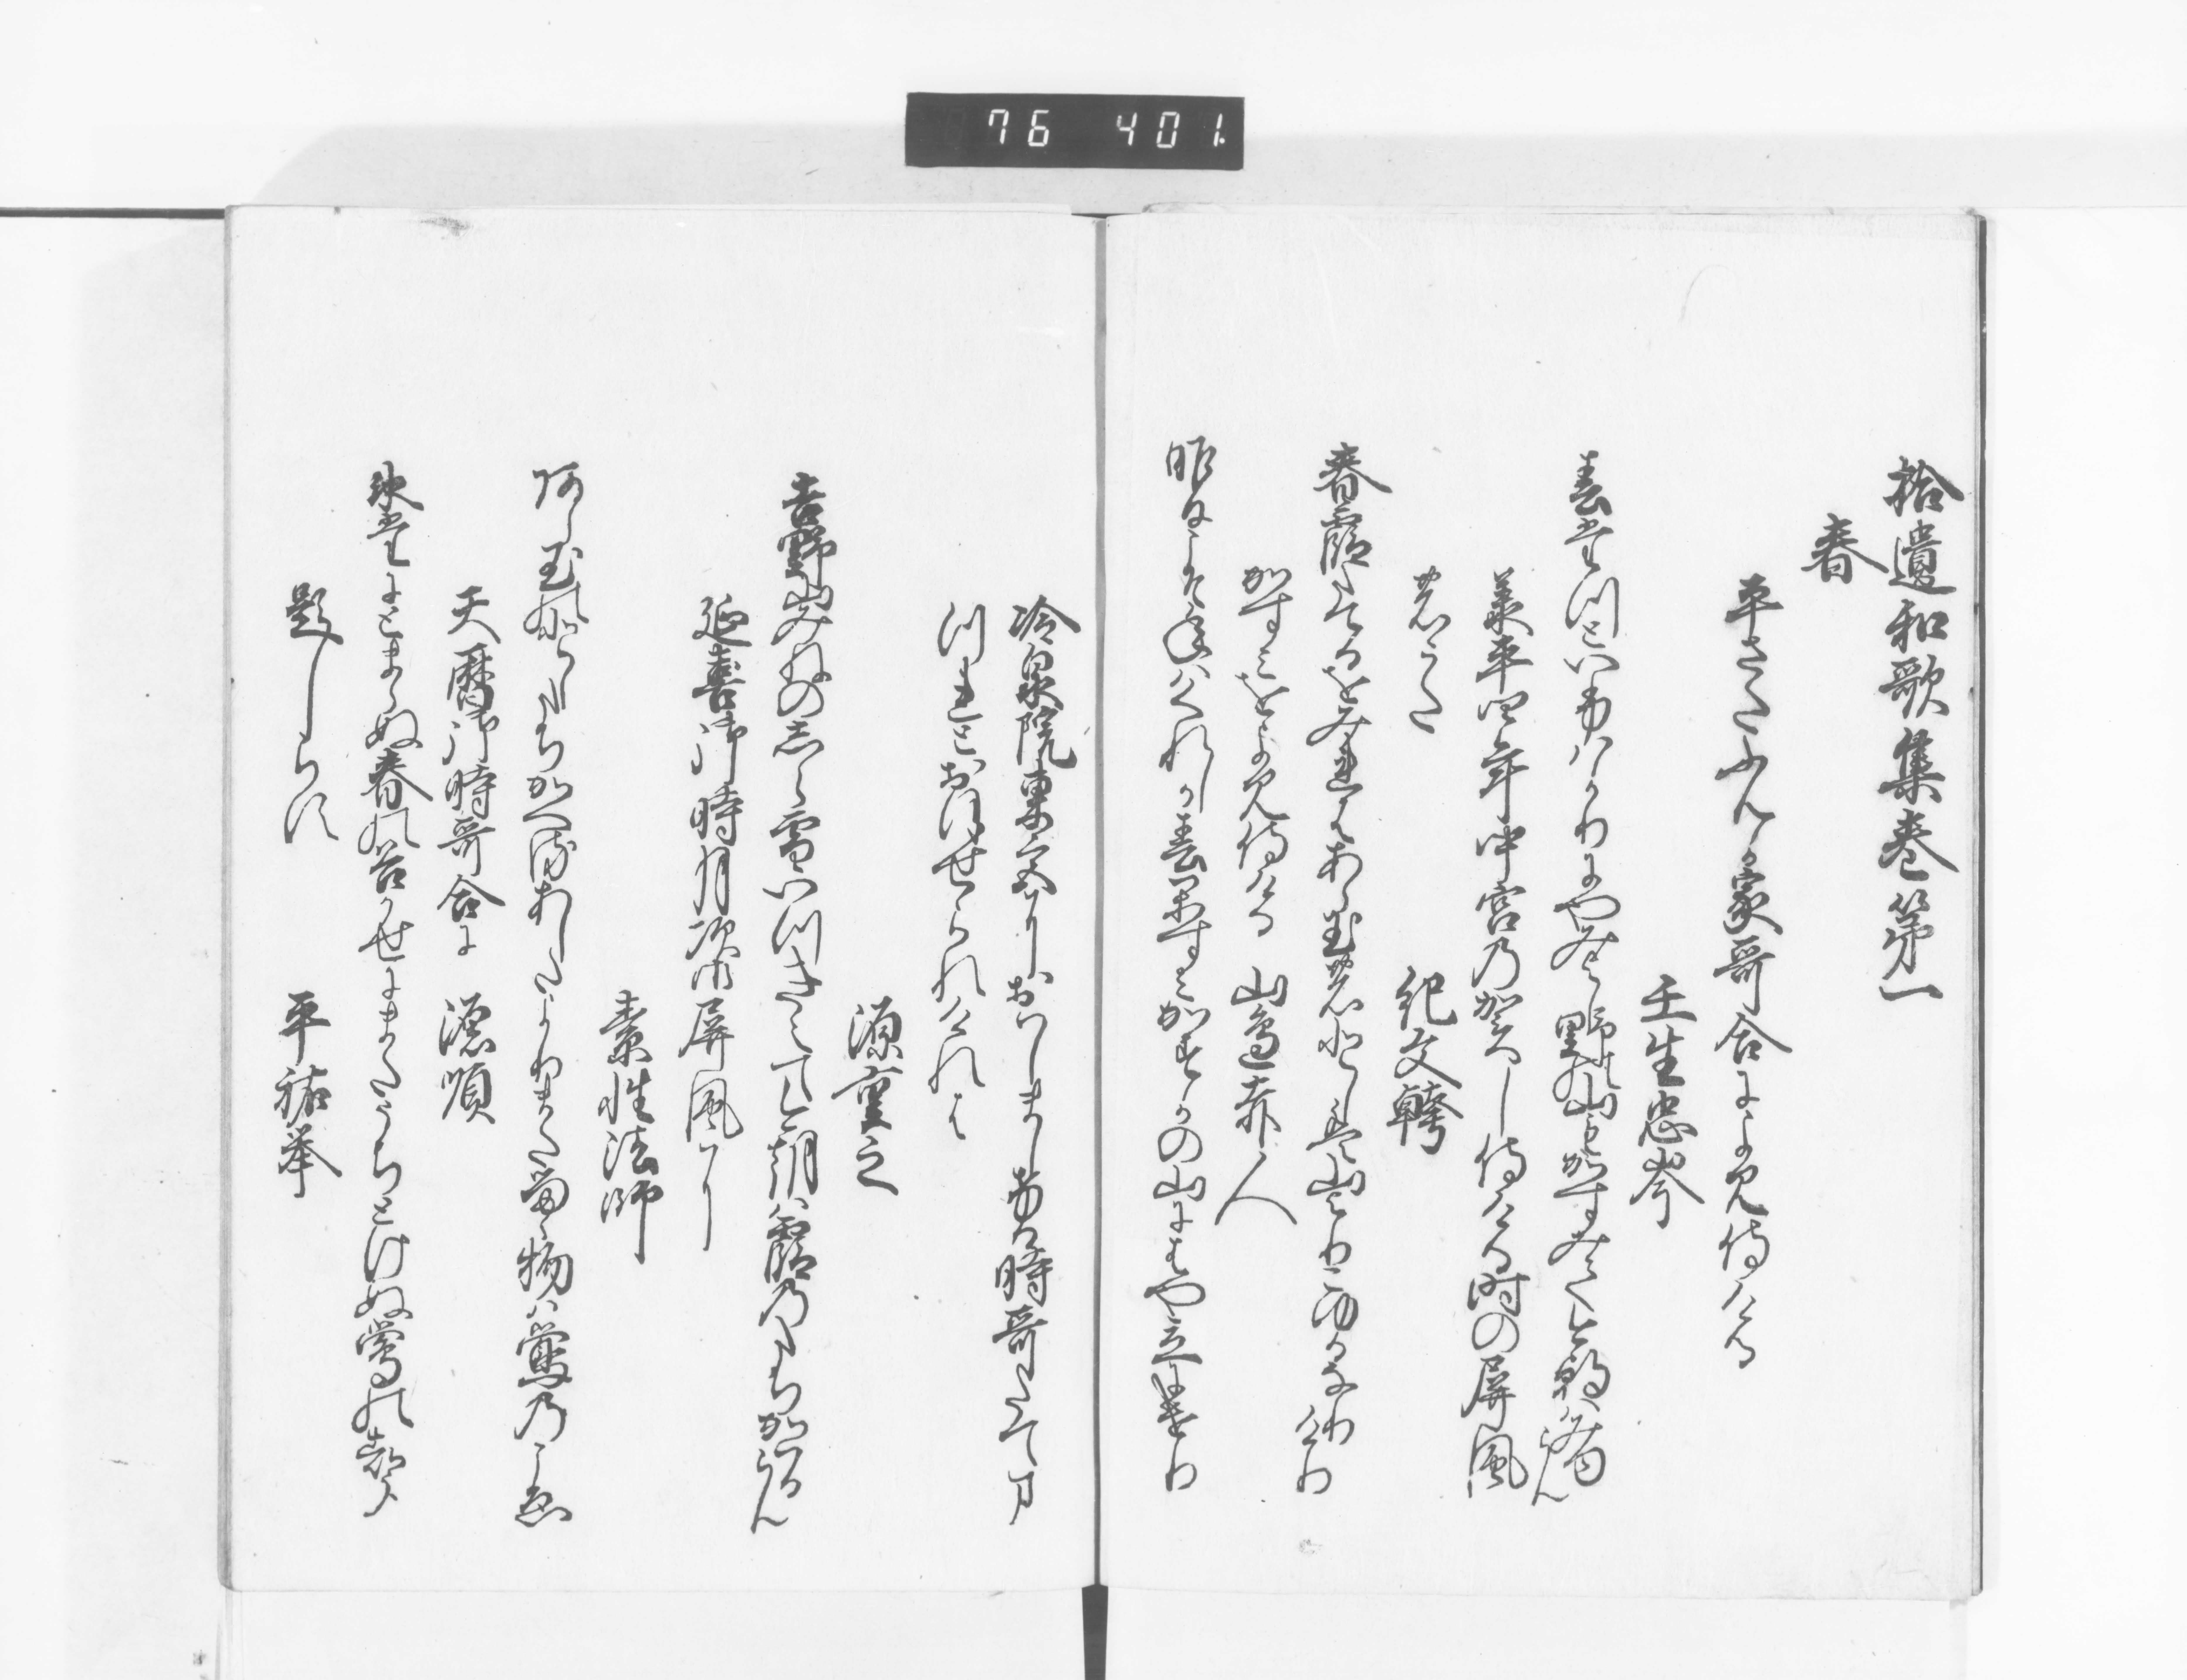 76 401
拾遺和歌集巻第一
春
平さたふんか家哥合によみ侍ける
壬生忠岑
春たつといふはかりにやみよし野の山もかすみてけさ朝はみゆらん
承平四年中宮の賀し侍ける時の屏風
のうた
紀文幹
春霞たてるをみれはあら玉の年は山よりこゆるなりけり
かすみをよみ侍ける 山邊赤人
昨日こそ年はくれしか春霞かすかの山にはや立にけり
冷泉院東宮におはしましける時哥たてまつ
れとおほせられけれは
源重之
吉野山みねのしら雪いつきえてけさ朝は霞のたちかはるらん
延喜御時月次御屏風に
素性法師
あら玉の年たちかへるあしたよりまたるる物は鶯のこゑ
天暦御時哥合に 源順
氷たにとまらぬ春の谷かせにまたうちとけぬ鶯の声
題しらす
平祐挙